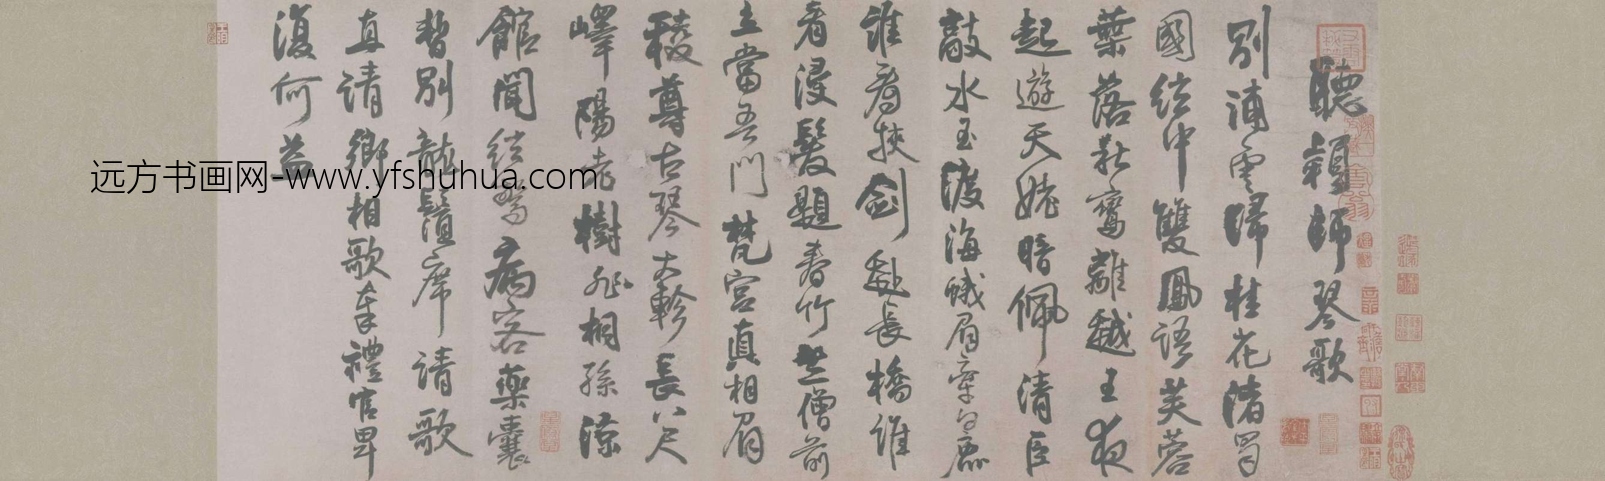 聽穎師琴歌
別浦雲歸桂花渚蜀
國絃中雙鳳語芙蓉
葉落秋鸞離越王夜
起遊天姥暗佩清臣
敲水玉渡海蛾眉牽白鹿
誰看挾劍赴長橋誰
看浸髮題春竹竺僧前
立當吾門梵宮真相眉
稜尊古琴大軫長八尺
嶧陽老樹非桐孫涼
館聞絃驚病客藥囊
暫別龍鬚席請歌
直請卿相歌奉禮官卑
復何益
远方书画网-www.yfshuhua.com